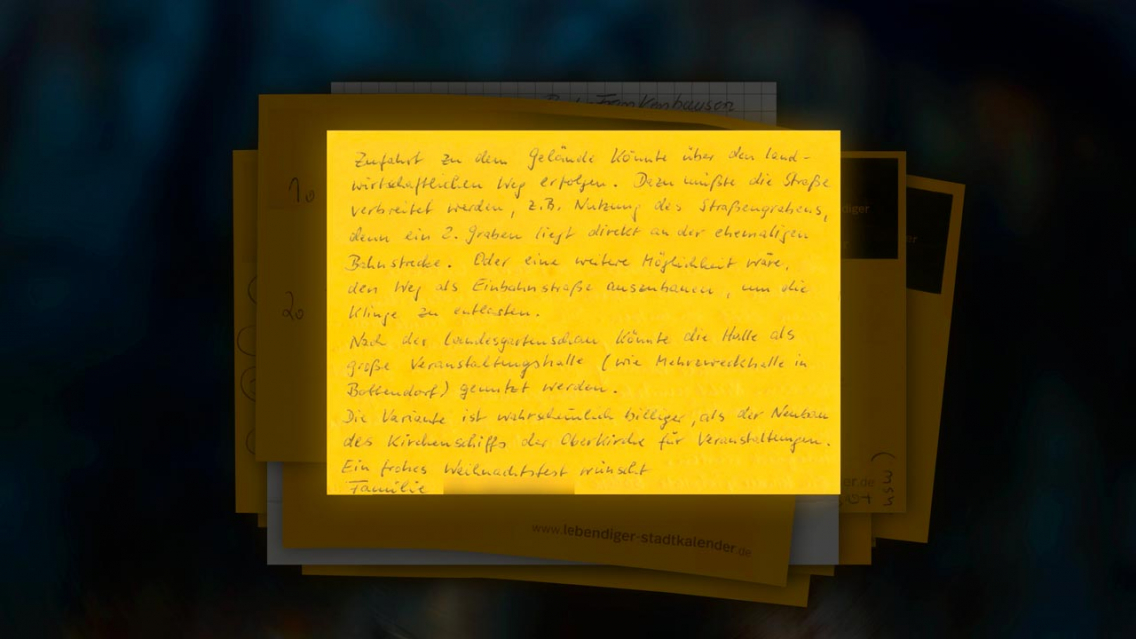 Bad Frankenhausen
10
20
Zufahrt zu dem Gelände könnte über den land-
wirtschaftlichen Weg erfolgen. Dazu müßte die Straße
verbreitet werden, z.B. Nutzung des Straßengrabens,
denn ein 2. Graben liegt direkt an der ehemaligen
Bahnstrecke. Oder eine weitere Möglichkeit wäre,
den Weg als Einbahnstraße auszubauen, um die
Klinge zu entlasten.
Nach der Landesgartenschau könnte die Halle als
große Veranstaltungshalle (wie Mehrzweckhalle in
Bottendorf) genutzt werden.
Die Variante ist wahrscheinlich billiger, als der Neubau
des Kirchenschiffs der Oberkirche für Veranstaltungen.
Ein frohes Weihnachtsfest wünscht
Familie
www.lebendiger-stadtkalender.de